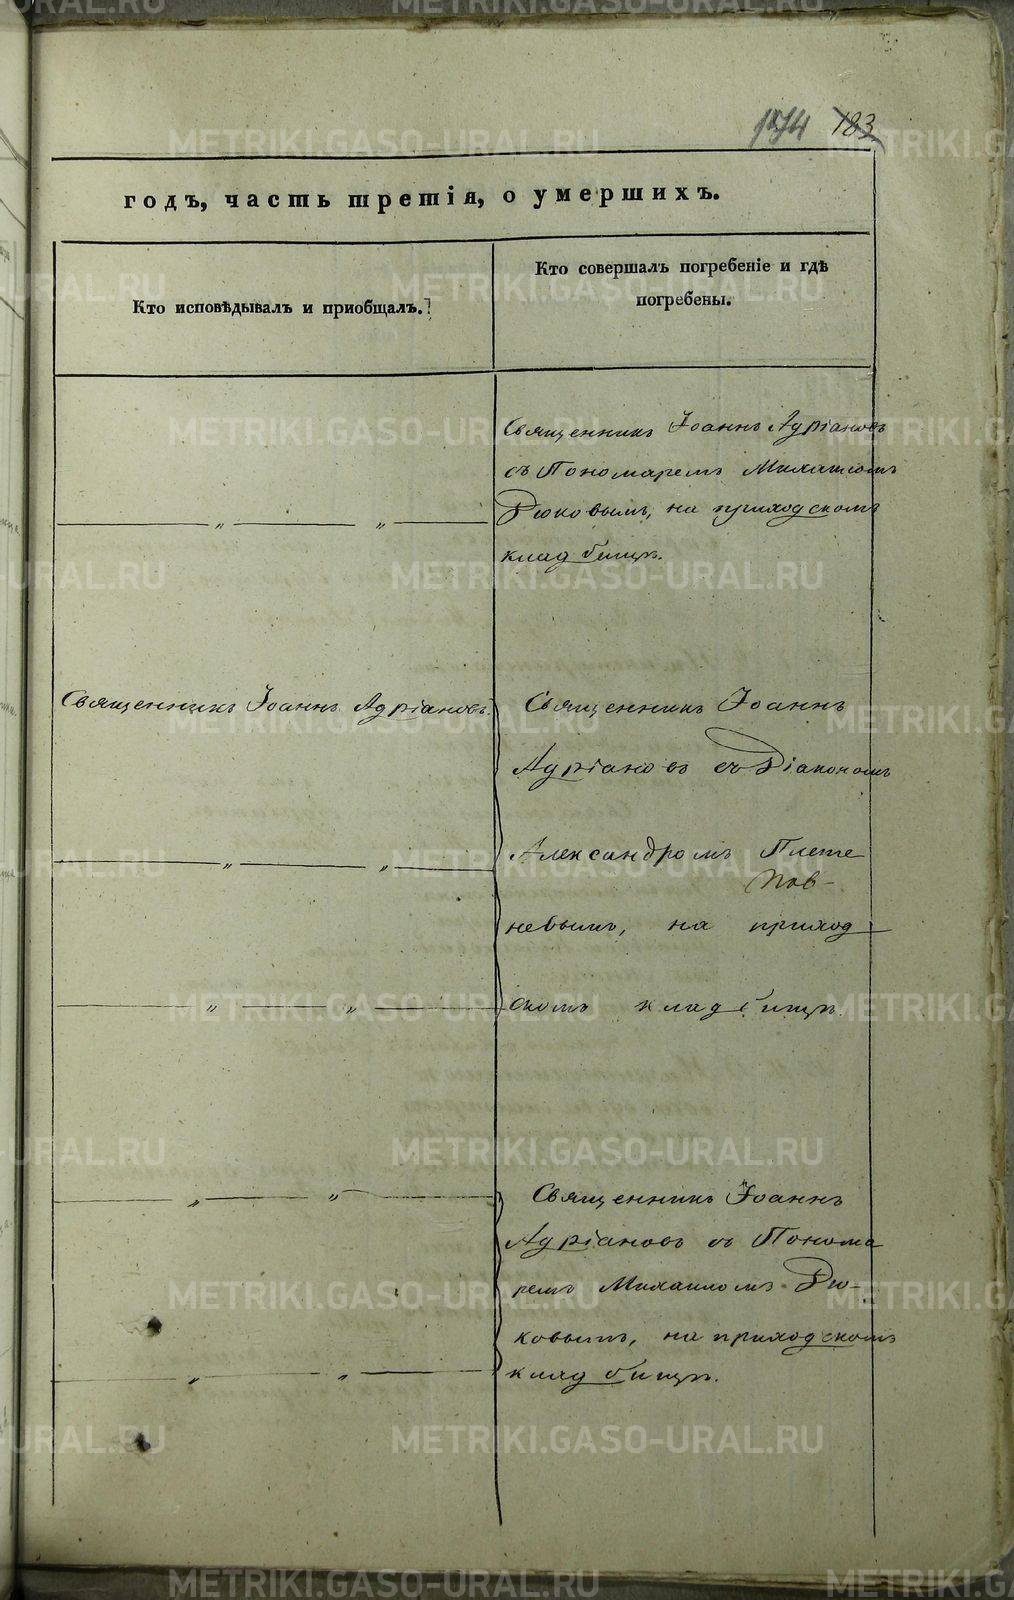 174 183
годъ, часть третія, о умершихъ.
Кто исповѣдывалъ и приобщалъ.
Кто совершалъ погребеніе и гдѣ
погребены.
Священникъ Іоаннъ Адріановъ
съ Пономаремъ Михаиломъ
Рюковымъ, на приходскомъ
кладбищѣ.
Священникъ Іоаннъ Адріановъ.
Священникъ Іоаннъ
Адріановъ съ Діакономъ
Александромъ Плете
невымъ, на приход
скомъ кладбищѣ.
Священникъ Іоаннъ
Адріановъ съ Понома
ремъ Михаиломъ Рю-
ковымъ, на приходскомъ
кладбищѣ.
METRIKI.GASO-URAL.RU